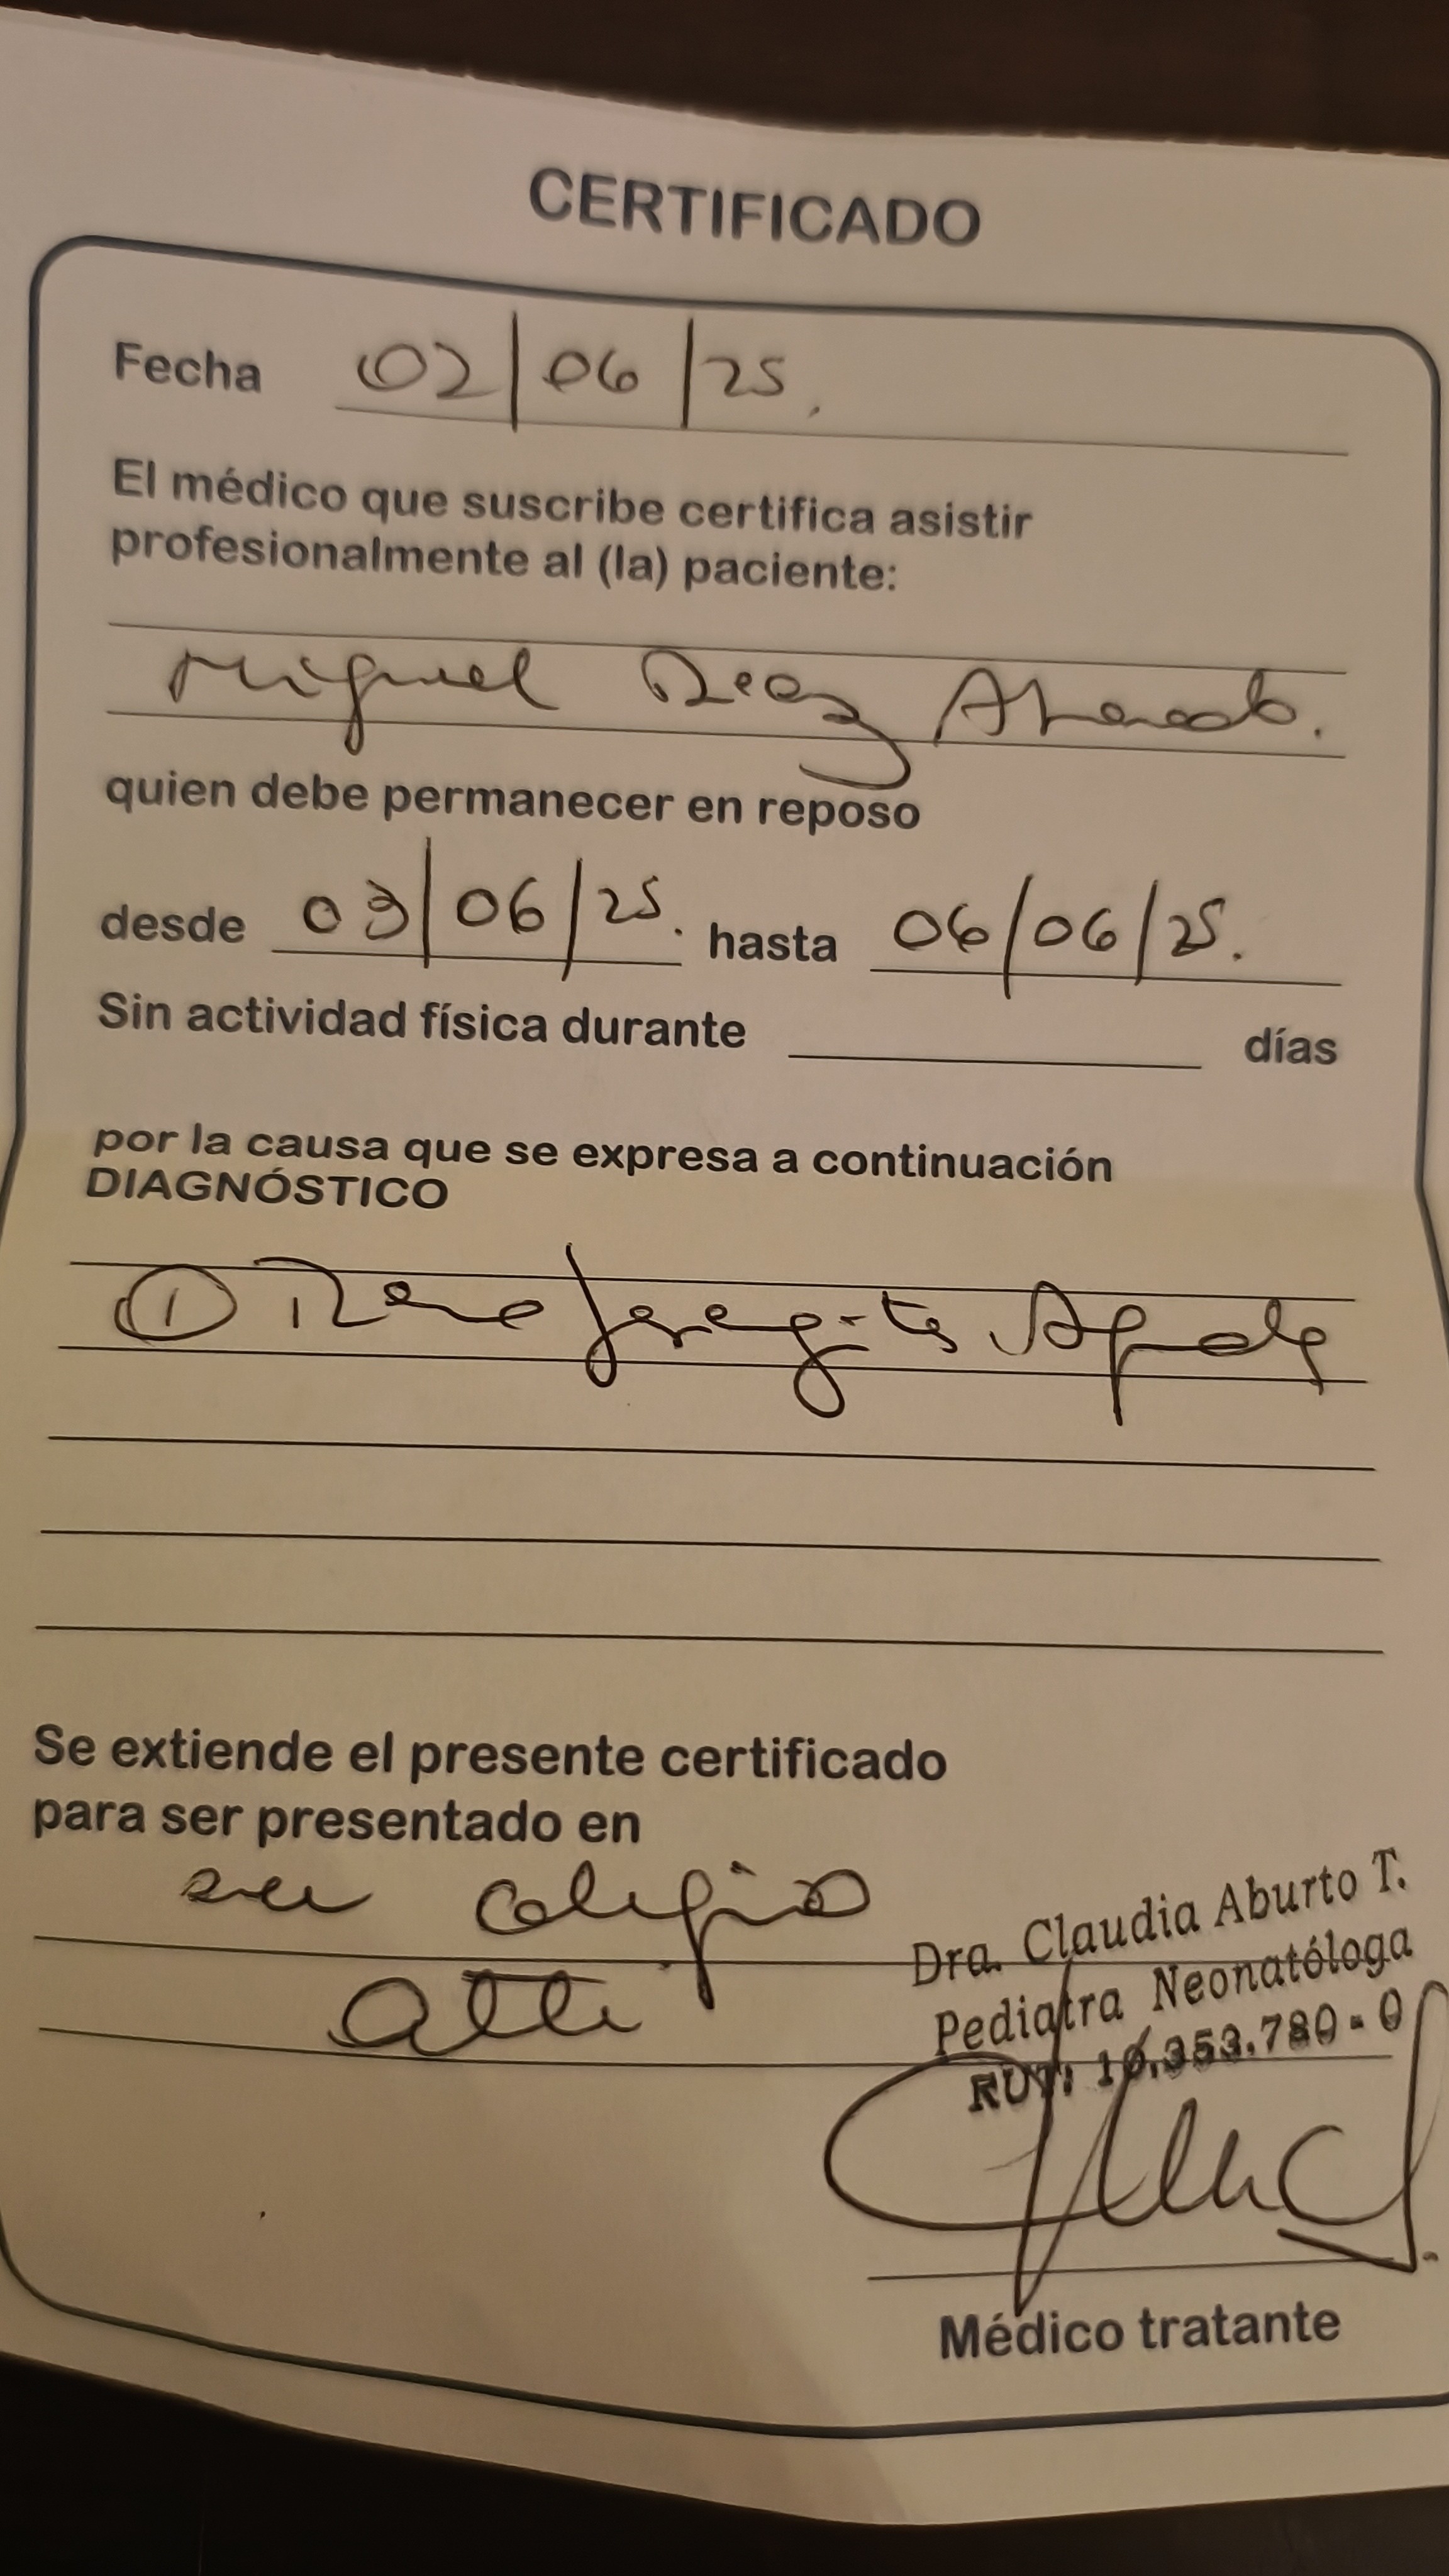 CERTIFICADO
Fecha 02/06/25.
El médico que suscribe certifica asistir
profesionalmente al (la) paciente:
Miguel Diaz
quien debe permanecer en reposo
desde 03/06/25. hasta 06/06/25.
Sin actividad física durante días
por la causa que se expresa a continuación
DIAGNÓSTICO
① Rinofaringitis Aguda
Se extiende el presente certificado
para ser presentado en
su colegio
Dra. Claudia Aburto T.
Pediatra Neonatóloga
RUT:
Médico tratante